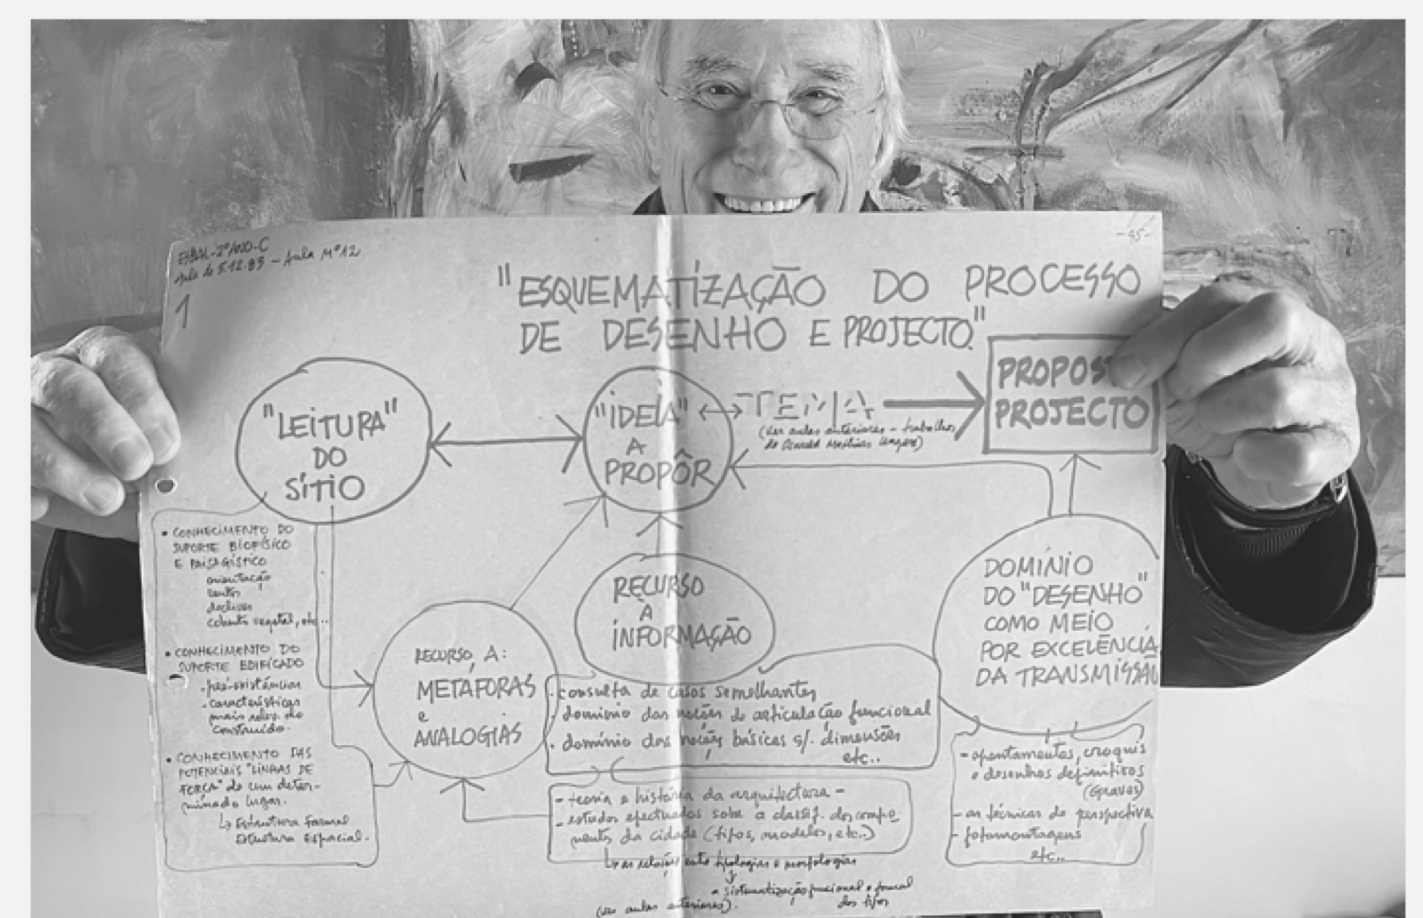 ESBAL-2ºANO-C
Aula de 5.12.83 - Aula Nº12
1
-45-
"ESQUEMATIZAÇÃO DO PROCESSO
DE DESENHO E PROJECTO"
"LEITURA"
DO
SÍTIO
"IDEIA"
A
PROPÔR
TEMA
(ver aulas anteriores - trabalhos
de Oswald Mathias Ungers)
PROPOS
PROJECTO
• CONHECIMENTO DO
SUPORTE BIOFÍSICO
E PAISAGÍSTICO
orientação
ventos
declives
coberto vegetal, etc..
• CONHECIMENTO DO
SUPORTE EDIFICADO
-pré-existências
-características
mais relev. do
construído.
• CONHECIMENTO DAS
POTENCIAIS "LINHAS DE
FORÇA" de um deter-
minado lugar.
↳ Estrutura formal
Estrutura espacial.
RECURSO A:
METÁFORAS
e
ANALOGIAS
RECURSO
À
INFORMAÇÃO
. consulta de casos semelhantes
. domínio das noções de articulação funcional
. domínio das noções básicas s/. dimensões
etc..
- teoria e história da arquitectura -
- estudos efectuados sobre a classif. dos compo
nentes da cidade (tipos, modelos, etc..)
↳ as relações entre tipologias e morfologias
a sistematização funcional e formal
dos tipos
(ver aulas anteriores).
DOMÍNIO
DO "DESENHO"
COMO MEIO
POR EXCELÊNCIA
DA TRANSMISSÃO
- apontamentos, croquis
e desenhos definitivos
(Graves)
- as técnicas de perspectiva
- fotomontagens
etc..